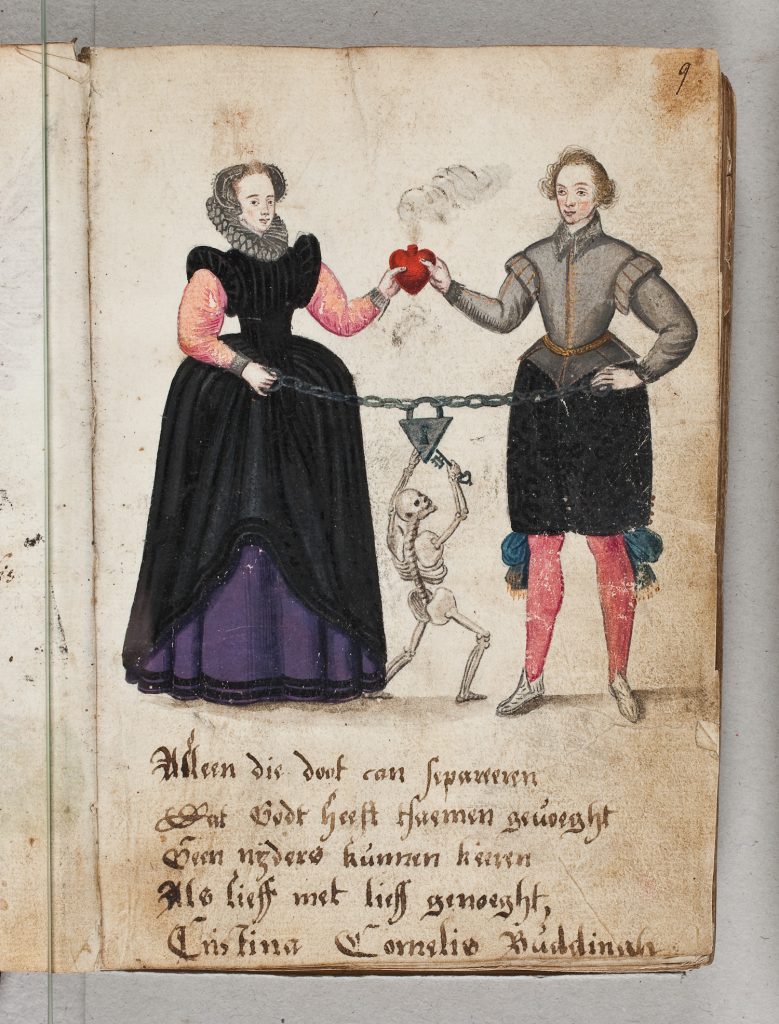 9
Alleen die doot can separeren
Dat Godt heeft tsaemen gevoeght
Geen nijders kunnen keeren
Als lieff met lieff genoeght,
Cristina Cornelis Buddingh